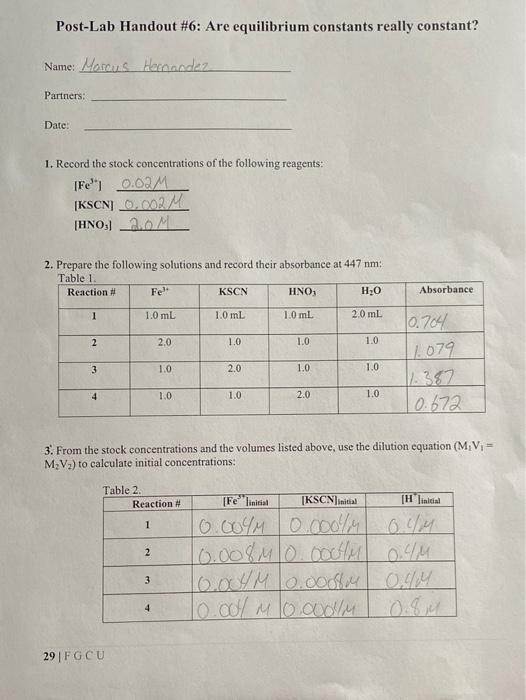 Post-Lab Handout #6: Are equilibrium constants really constant?
Name: Marcus Hernandez
Partners:
Date:
1. Record the stock concentrations of the following reagents:
[Fe³⁺] 0.02M
[KSCN] 0.002M
[HNO₃] 2.0M
2. Prepare the following solutions and record their absorbance at 447 nm:
Table 1.
Reaction # Fe³⁺ KSCN HNO₃ H₂O Absorbance
1 1.0 mL 1.0 mL 1.0 mL 2.0 mL 0.704
2 2.0 1.0 1.0 1.0 1.079
3 1.0 2.0 1.0 1.0 1.387
4 1.0 1.0 2.0 1.0 0.672
3. From the stock concentrations and the volumes listed above, use the dilution equation (M₁V₁ =
M₂V₂) to calculate initial concentrations:
Table 2.
Reaction # [Fe³⁺]initial [KSCN]initial [H⁺]initial
1 0.004M 0.0004M 0.4M
2 0.008M 0.0004M 0.4M
3 0.004M 0.0008M 0.4M
4 0.004M 0.0004M 0.8M
29 | F G C U